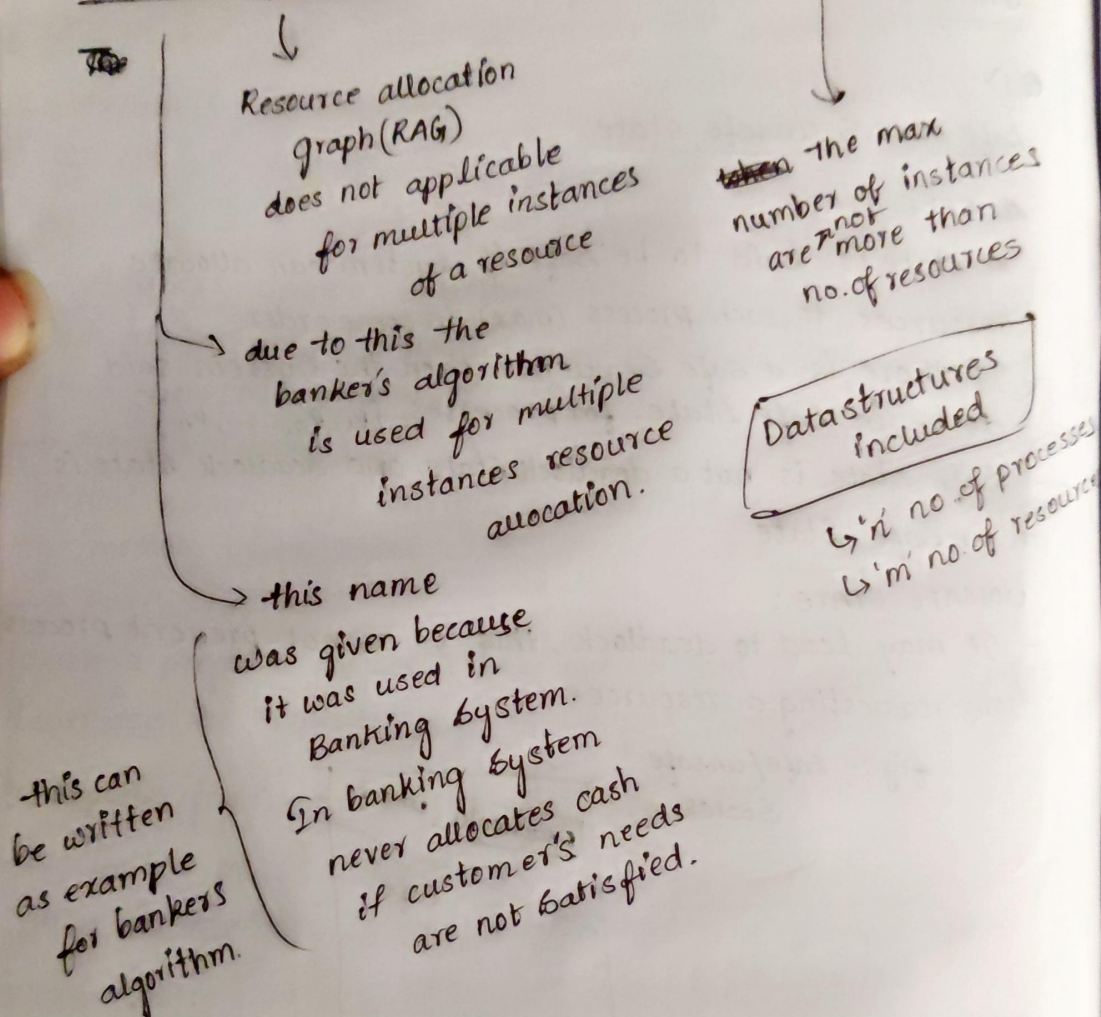 Resource allocation
graph (RAG)
does not applicable
for multiple instances
of a resource
due to this the
banker's algorithm
is used for multiple
instances resource
allocation.
this name
was given because
it was used in
Banking System.
In banking System
never allocates cash
if customer's needs
are not Satisfied.
this can
be written
as example
for bankers
algorithm.
the max
number of instances
are not more than
no. of resources
Datastructures
included
↳ 'n' no. of processes
↳ 'm' no. of resource